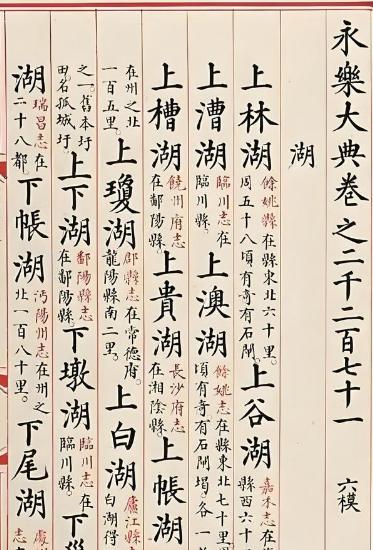 永樂大典卷之二千二百七十一 六模
湖
上林湖餘姚縣在縣東北六十里。周五十八頃有奇有石閘。上谷湖嘉禾志在縣西六十
上漕湖臨川志在臨川縣。上澳湖餘姚志在縣東北七十里頃有奇有石閘堨。各一
上槽湖饒州府志在鄱陽縣。上貴湖長沙府志在湘陰縣。上帳湖
在州之北一百五里。上瓊湖郡縣志在常德府。龍陽縣南二里。上白湖廬江縣志白湖得
之一。舊本圩田名孤城圩。上下湖鄱陽縣志在鄱陽縣。下墩湖臨川志在臨川縣。下
湖瑞昌志在二十八都。下帳湖沔陽州志在州之北一百八十里。下尾湖